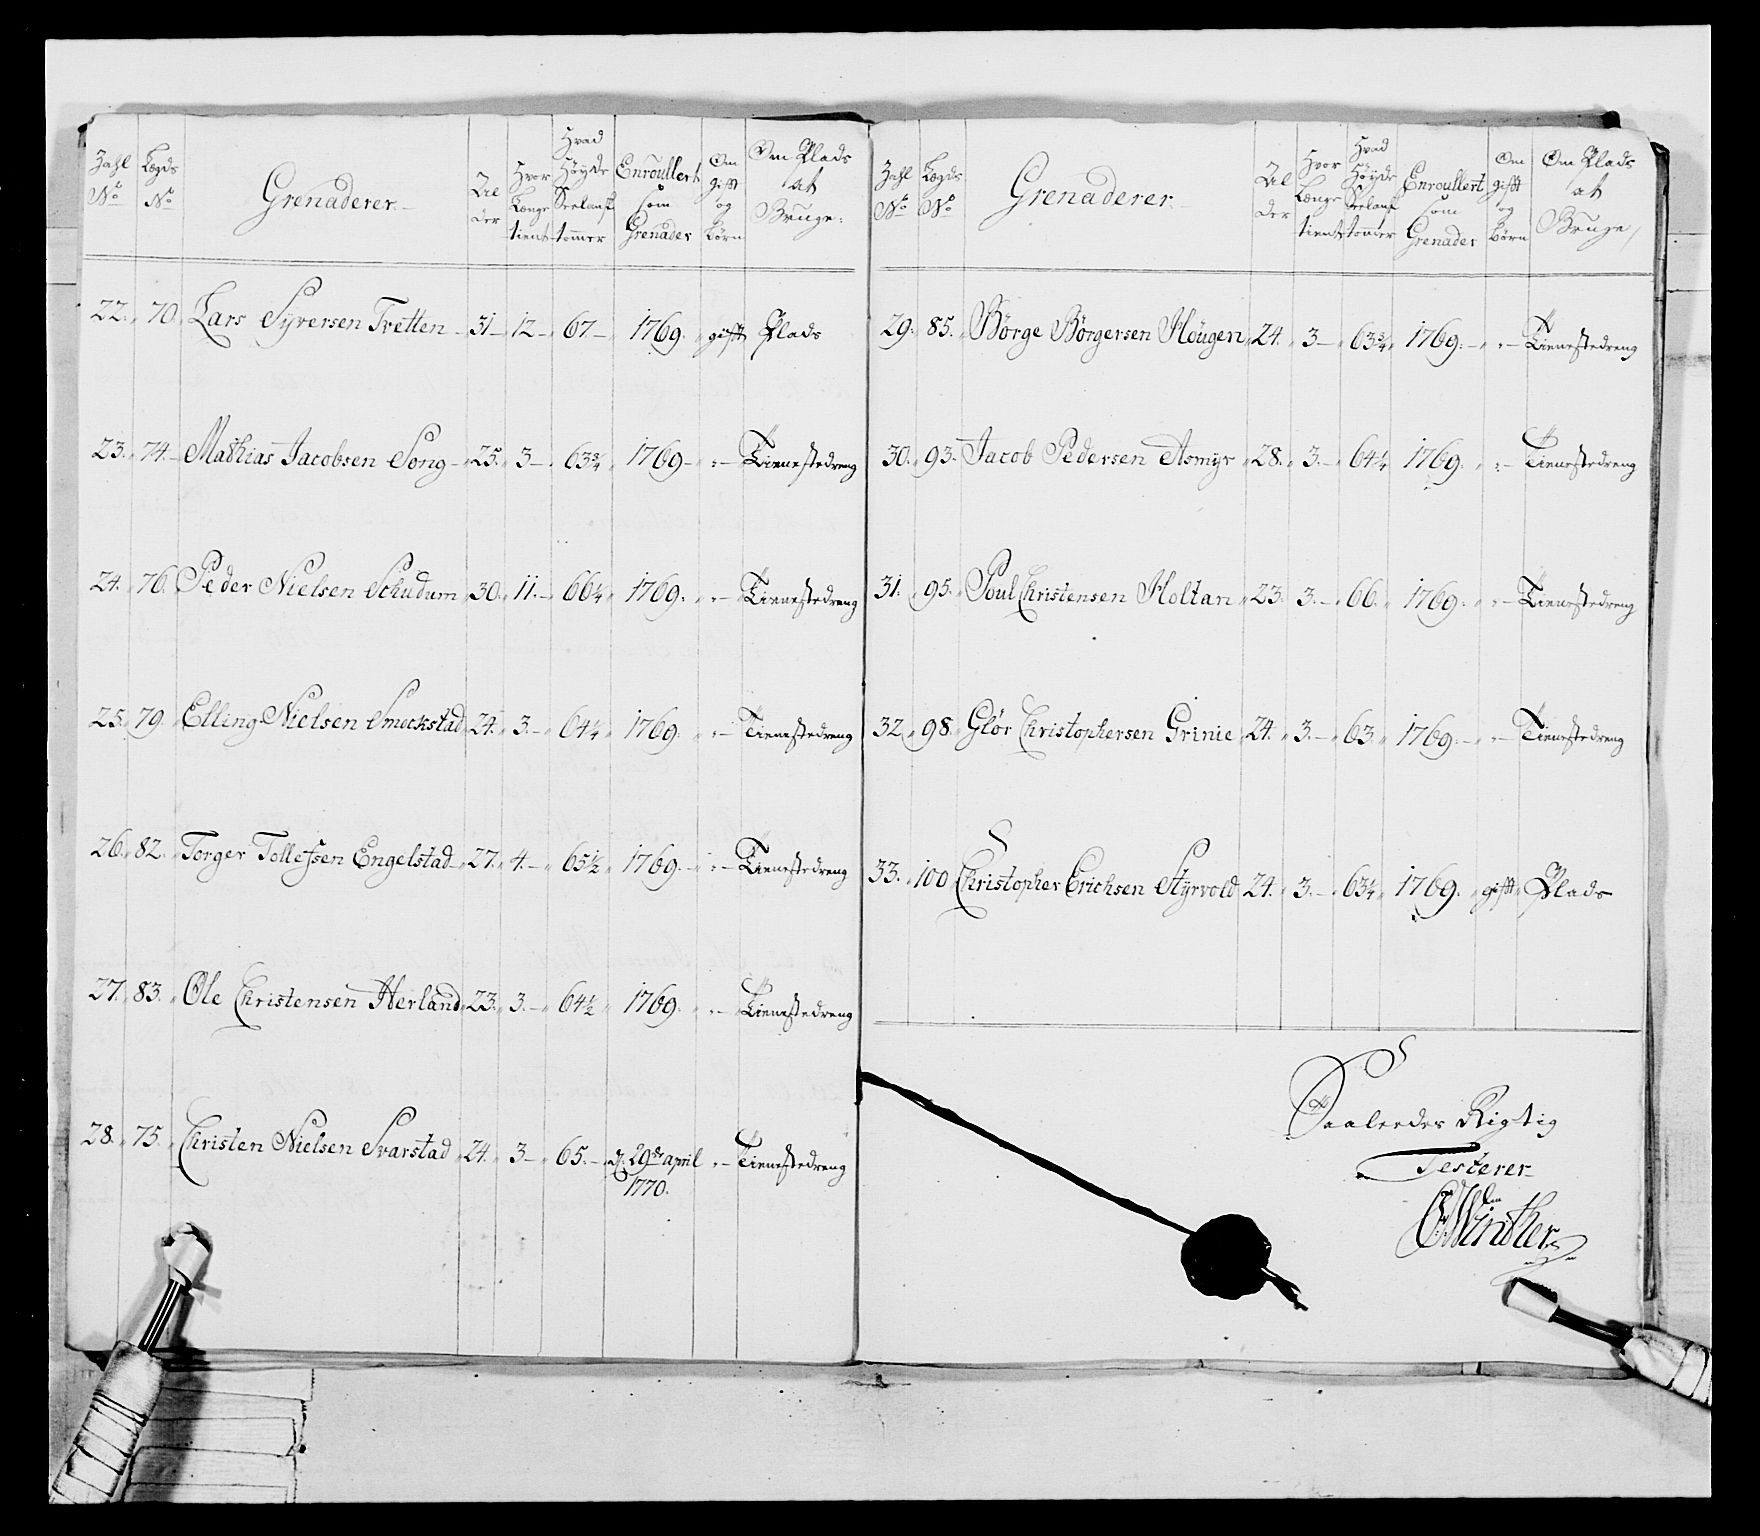 Zahl No Lægds No Grenaderer Alder Hvor Længe tient Hvad Høyde Seelandst tommer Enroullert som Grenader Om gift og børn Om Plads at Bruge:
22. 70. Lars Syversen Tvetten 31 12 67 1769. gift Plads
23. 74. Mathias Jacobsen Song 25. 3 63 3/4 1769 Tienestedreng
24. 76. Peder Nielsen Schudum 30. 11. 66 1/4 1769. Tienestedreng
25. 79. Elling Nielsen Smeckstad 24. 3. 64 1/4 1769. Tienestedreng
26. 82. Torger Tollefsen Engelstad 27. 4. 65 1/2 1769. Tienestedreng
27. 83. Ole Christensen Herland 23. 3. 64 1/2 1769. Tienestedreng
28. 75. Christen Nielsen Svarstad 24. 3 65. d: 29de april 1770. Tienestedreng
Zahl No Lægds No Grenaderer Alder Hvor Længe tient Hvad Høyde Seelandst tommer Enroullert som Grenader Om gift og børn Om Plads at Bruge
29. 85. Børge Børgersen Hougen 24. 3 63 3/4 1769. Tienestedreng
30. 93. Jacob Pedersen Asmyr 28. 3. 64 1/4 1769. Tienestedreng
31. 95. Poul Christensen Holtan 23. 3. 66. 1769. Tienestedreng
32 98. Glør Christophersen Grinie 24. 3. 63. 1769. Tienestedreng
33. 100 Christopher Erichsen Styrvold 24. 3. 63 1/4 1769. gift Plads
Saaleedes Rigtig
Testerer
Winther